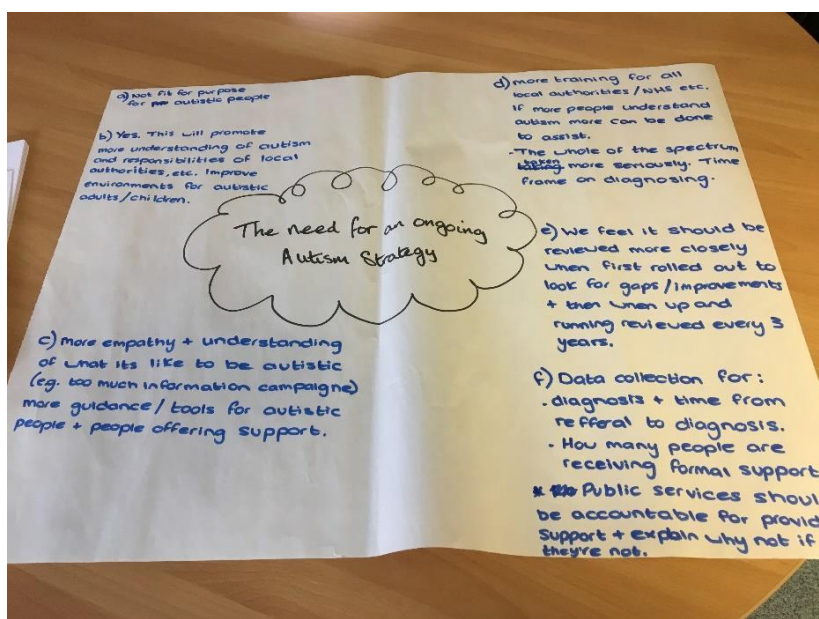 a) Not fit for purpose
for autistic people
b) Yes. This will promote
more understanding of autism
and responsibilities of local
authorities, etc. Improve
environments for autistic
adults/children.
The need for an ongoing
Autism Strategy
c) more empathy + understanding
of what its like to be autistic
(eg. too much information campaigne)
more guidance/tools for autistic
people + people offering support.
d) more training for all
local authorities/NHS etc.
If more people understand
autism more can be done
to assist.
- The whole of the spectrum
taken more seriously. Time
frame on diagnosing.
e) We feel it should be
reviewed more closely
when first rolled out to
look for gaps/improvements
+ then when up and
running reviewed every 3
years.
f) Data collection for:
- diagnosis + time from
refferal to diagnosis.
- How many people are
receiving formal support
* Public services shoul
be accountable for provid
support + explain why not if
they're not.